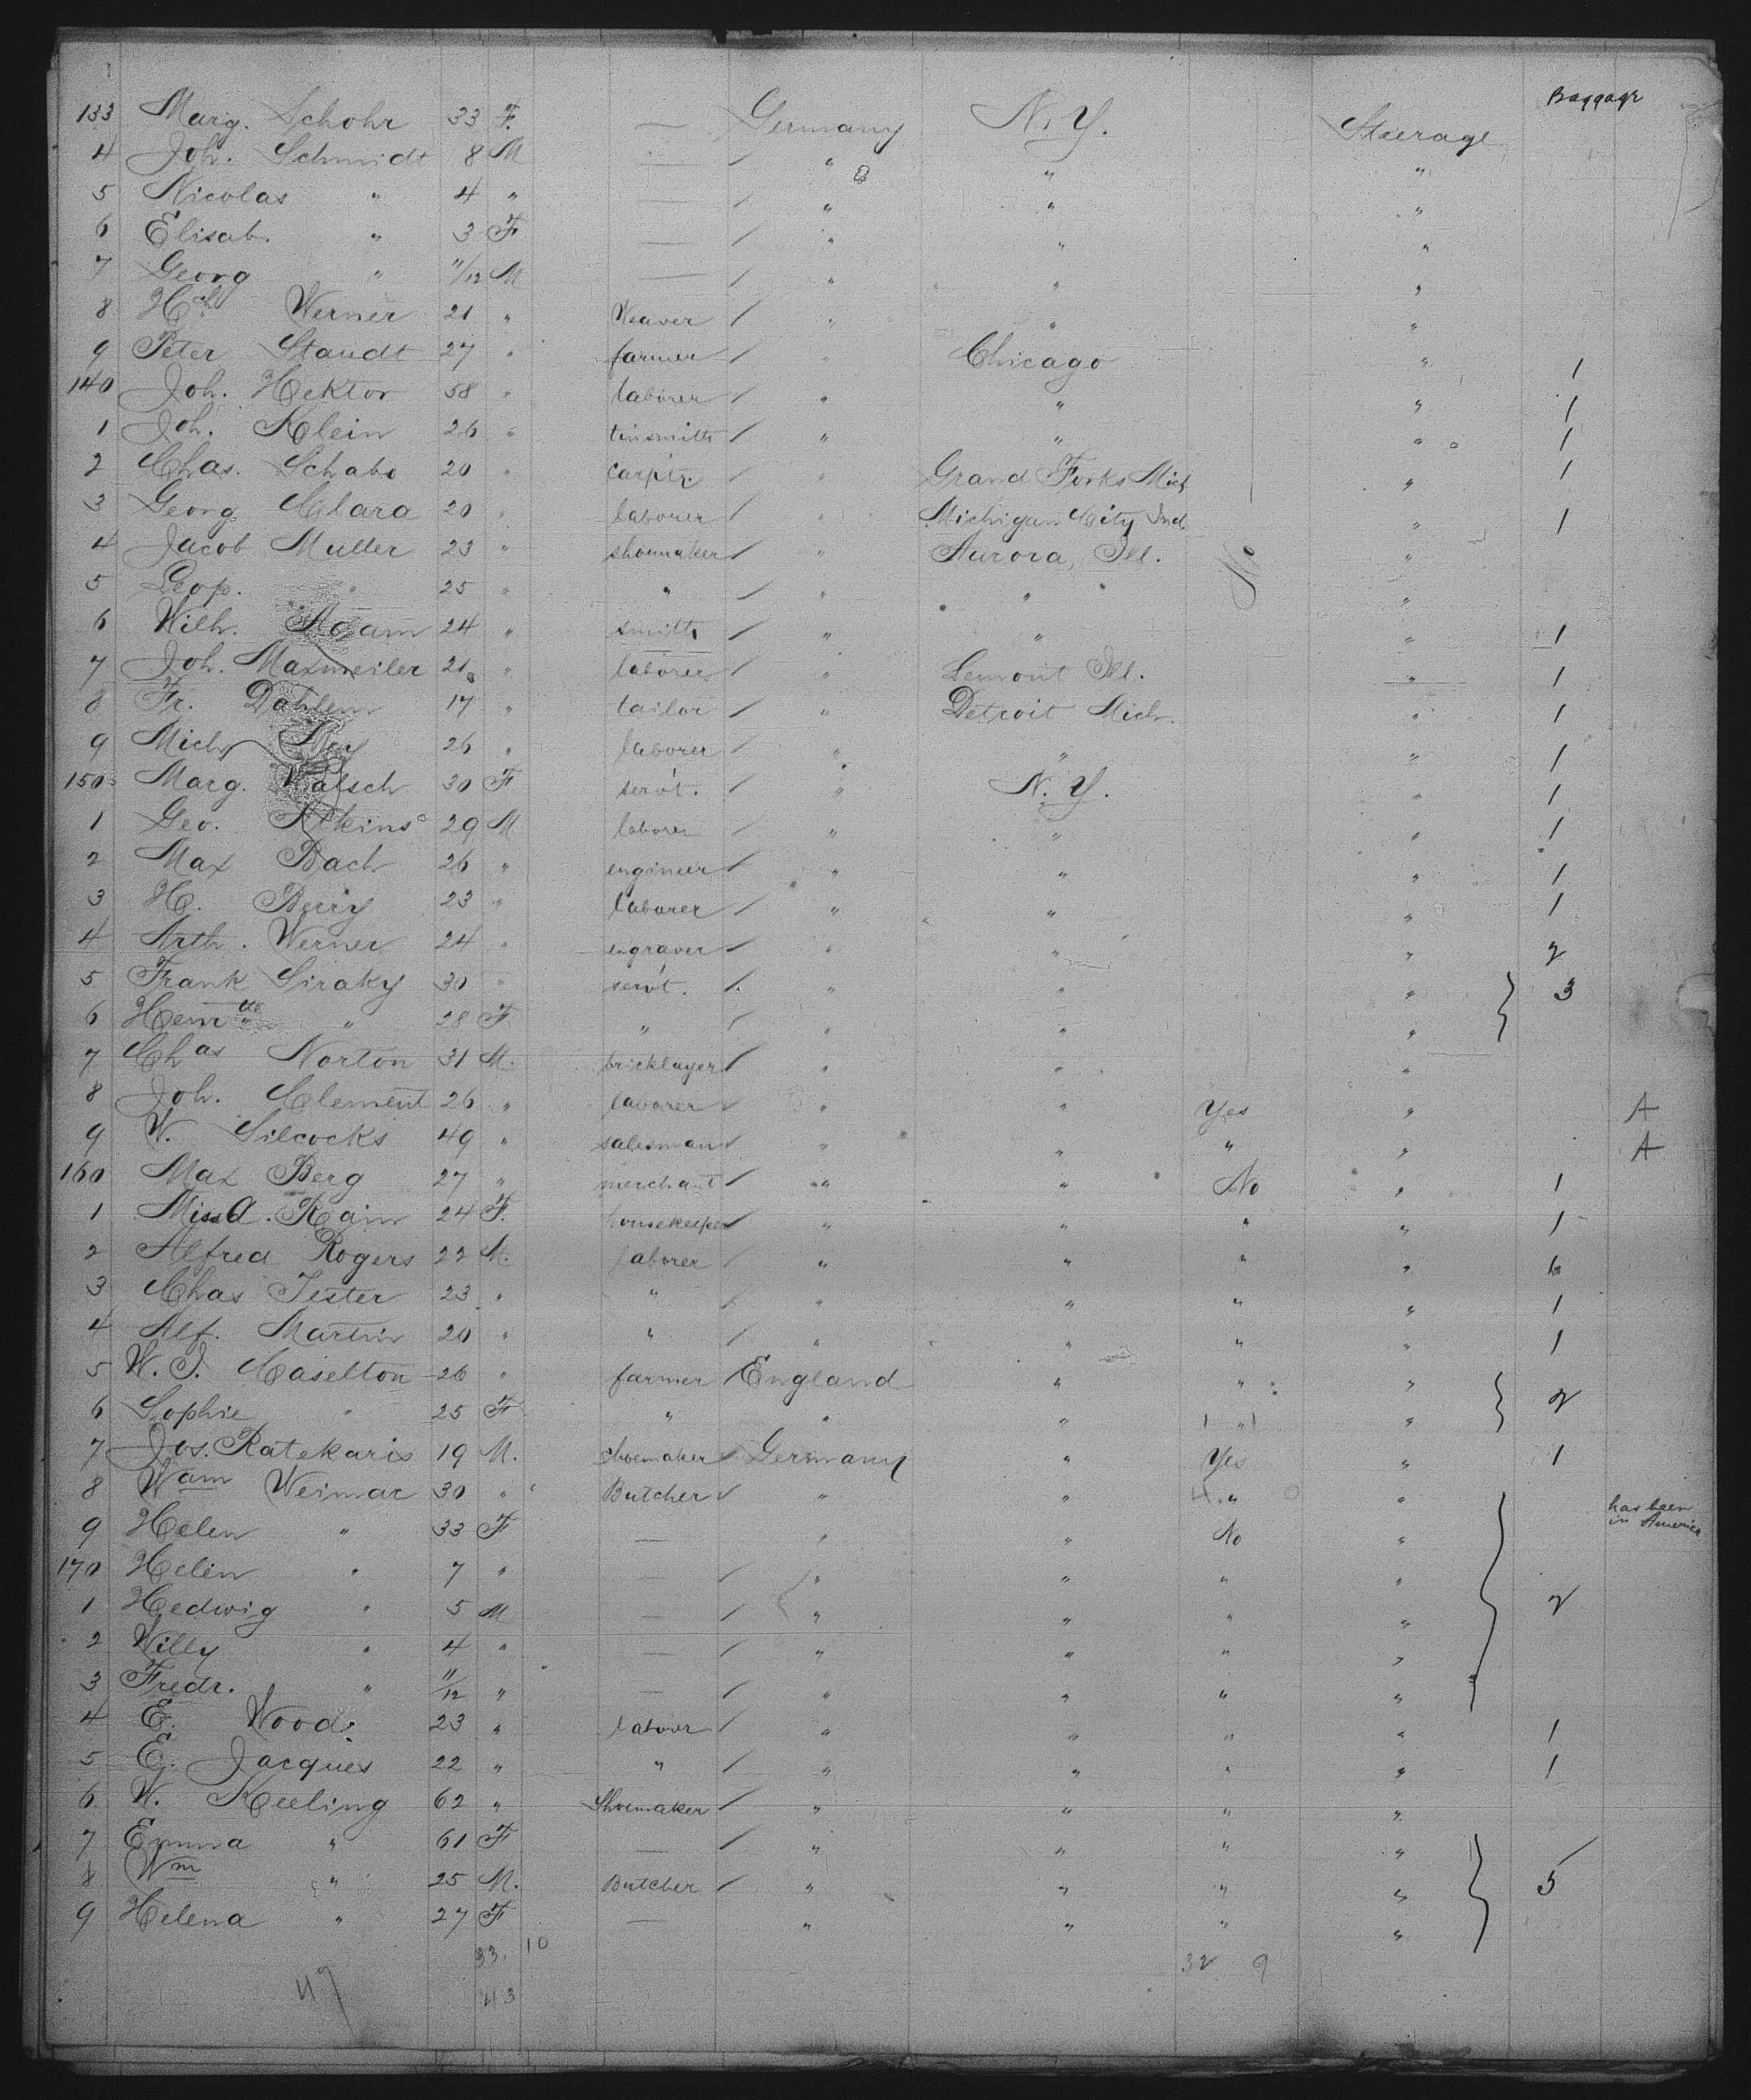 Baggage
133 Marg. Schohr 33 F. — Germany N. Y. Steerage
4 Joh. Schmidt 8 M — " " "
5 Nicolas " 4 " — " " "
6 Elisab. " 3 F — " " "
7 Georg " 11/12 M — " " "
8 Hch Werner 21 " Weaver " " "
9 Peter Staudt 27 " farmer " Chicago " 1
140 Joh. Hektor 58 " laborer " " " 1
1 Joh. Klein 26 " tinsmith " " " 1
2 Chas. Schabo 20 " carptr. " Grand Forks Mich " 1
3 Georg Clara 20 " laborer " Michigan City Ind " 1
4 Jacob Muller 23 " shoemaker " Aurora, Ill. No "
5 Leop. " 25 " " " " "
6 Wilh. Adam 24 " smith " " " 1
7 Joh. Maxmeiler 21 " laborer " Lemont Ill. " 1
8 Fr. Dahlem 17 " tailor " Detroit Mich. " 1
9 Mich May 26 " laborer " " " 1
150 Marg. Watsch 30 F serv't. " N. Y. " 1
1 Geo. Atkins 29 M laborer " " " 1
2 Max Bach 26 " engineer " " " 1
3 H. Berry 23 " laborer " " " 1
4 Arth. Werner 24 " engraver " " " 2
5 Frank Siraky 30 " serv't. " " " 3
6 " 28 F " " " "
7 Chas Norton 31 M. bricklayer " " "
8 Joh. Clement 26 " laborer " " Yes " A
9 W. Silcocks 49 " salesman " " " " A
160 Max Berg 27 " merchant " " No " 1
1 Miss A. Kain 24 F. housekeeper " " " " 1
2 Alfred Rogers 22 M. laborer " " " "
3 Chas Jester 23 " " " " " " 1
4 Alf. Martin 20 " " " " " " 1
5 W. J. Caselton 26 " farmer England " " " 2
6 Sophie " 25 F " " " " "
7 Jos. Ratekaris 19 M. shoemaker Germany " Yes " 1
8 Wam Weimar 30 " Butcher " " " " has been in America
9 Helen " 33 F — " " No "
170 Helen " 7 " — " " " "
1 Hedwig " 5 M — " " " " 2
2 Willy " 4 " — " " " "
3 Fredr. " 11/12 " — " " " "
4 E. Wood 23 " laborer " " " " 1
5 E. Jacques 22 " " " " " " 1
6 W. Keeling 62 " Shoemaker " " " "
7 Emma " 61 F — " " " "
8 Wm " 25 M. Butcher " " " " 5
9 Helena " 27 F — " " " "
33 10 32 9
43